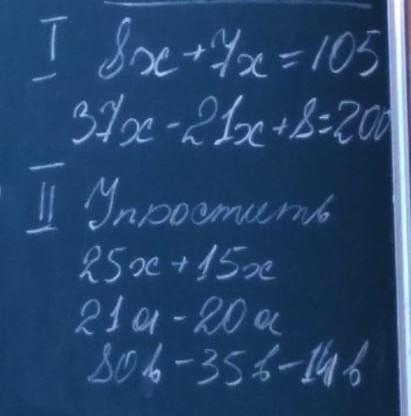 I 8x+7x=105
37x-21x+8=200
II Упростить
25x+15x
21a-20a
80b-35b-14b